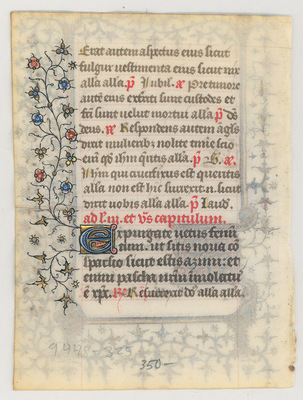 Erat autem aspectus eius sicut
fulgur vestimenta eius sicut nix
alla alla. p̄ Iubil. ae Pre timore
autē eius exterti sunt custodes et
fcī sunt velut mortui alla. p̄ dō
deus. ae Respondens autem agls
dixit mulierib; nolite time scio
eni q̄ ihm q̄ritis alla. p̄ ae.
Ihm qui crucifixus est queritis
alla non est hic surrexit n. sicut
dixit vobis alla alla. p̄ Laud.
ad et capitulum.
Expurgate vetus fermē
tum. ut sitis noua cō
sparsio sicut estis azimi: et
enim pascha nrm imolatꝰ
ē xp̄c. Resurrexit dō alla alla.
9448-325
350-